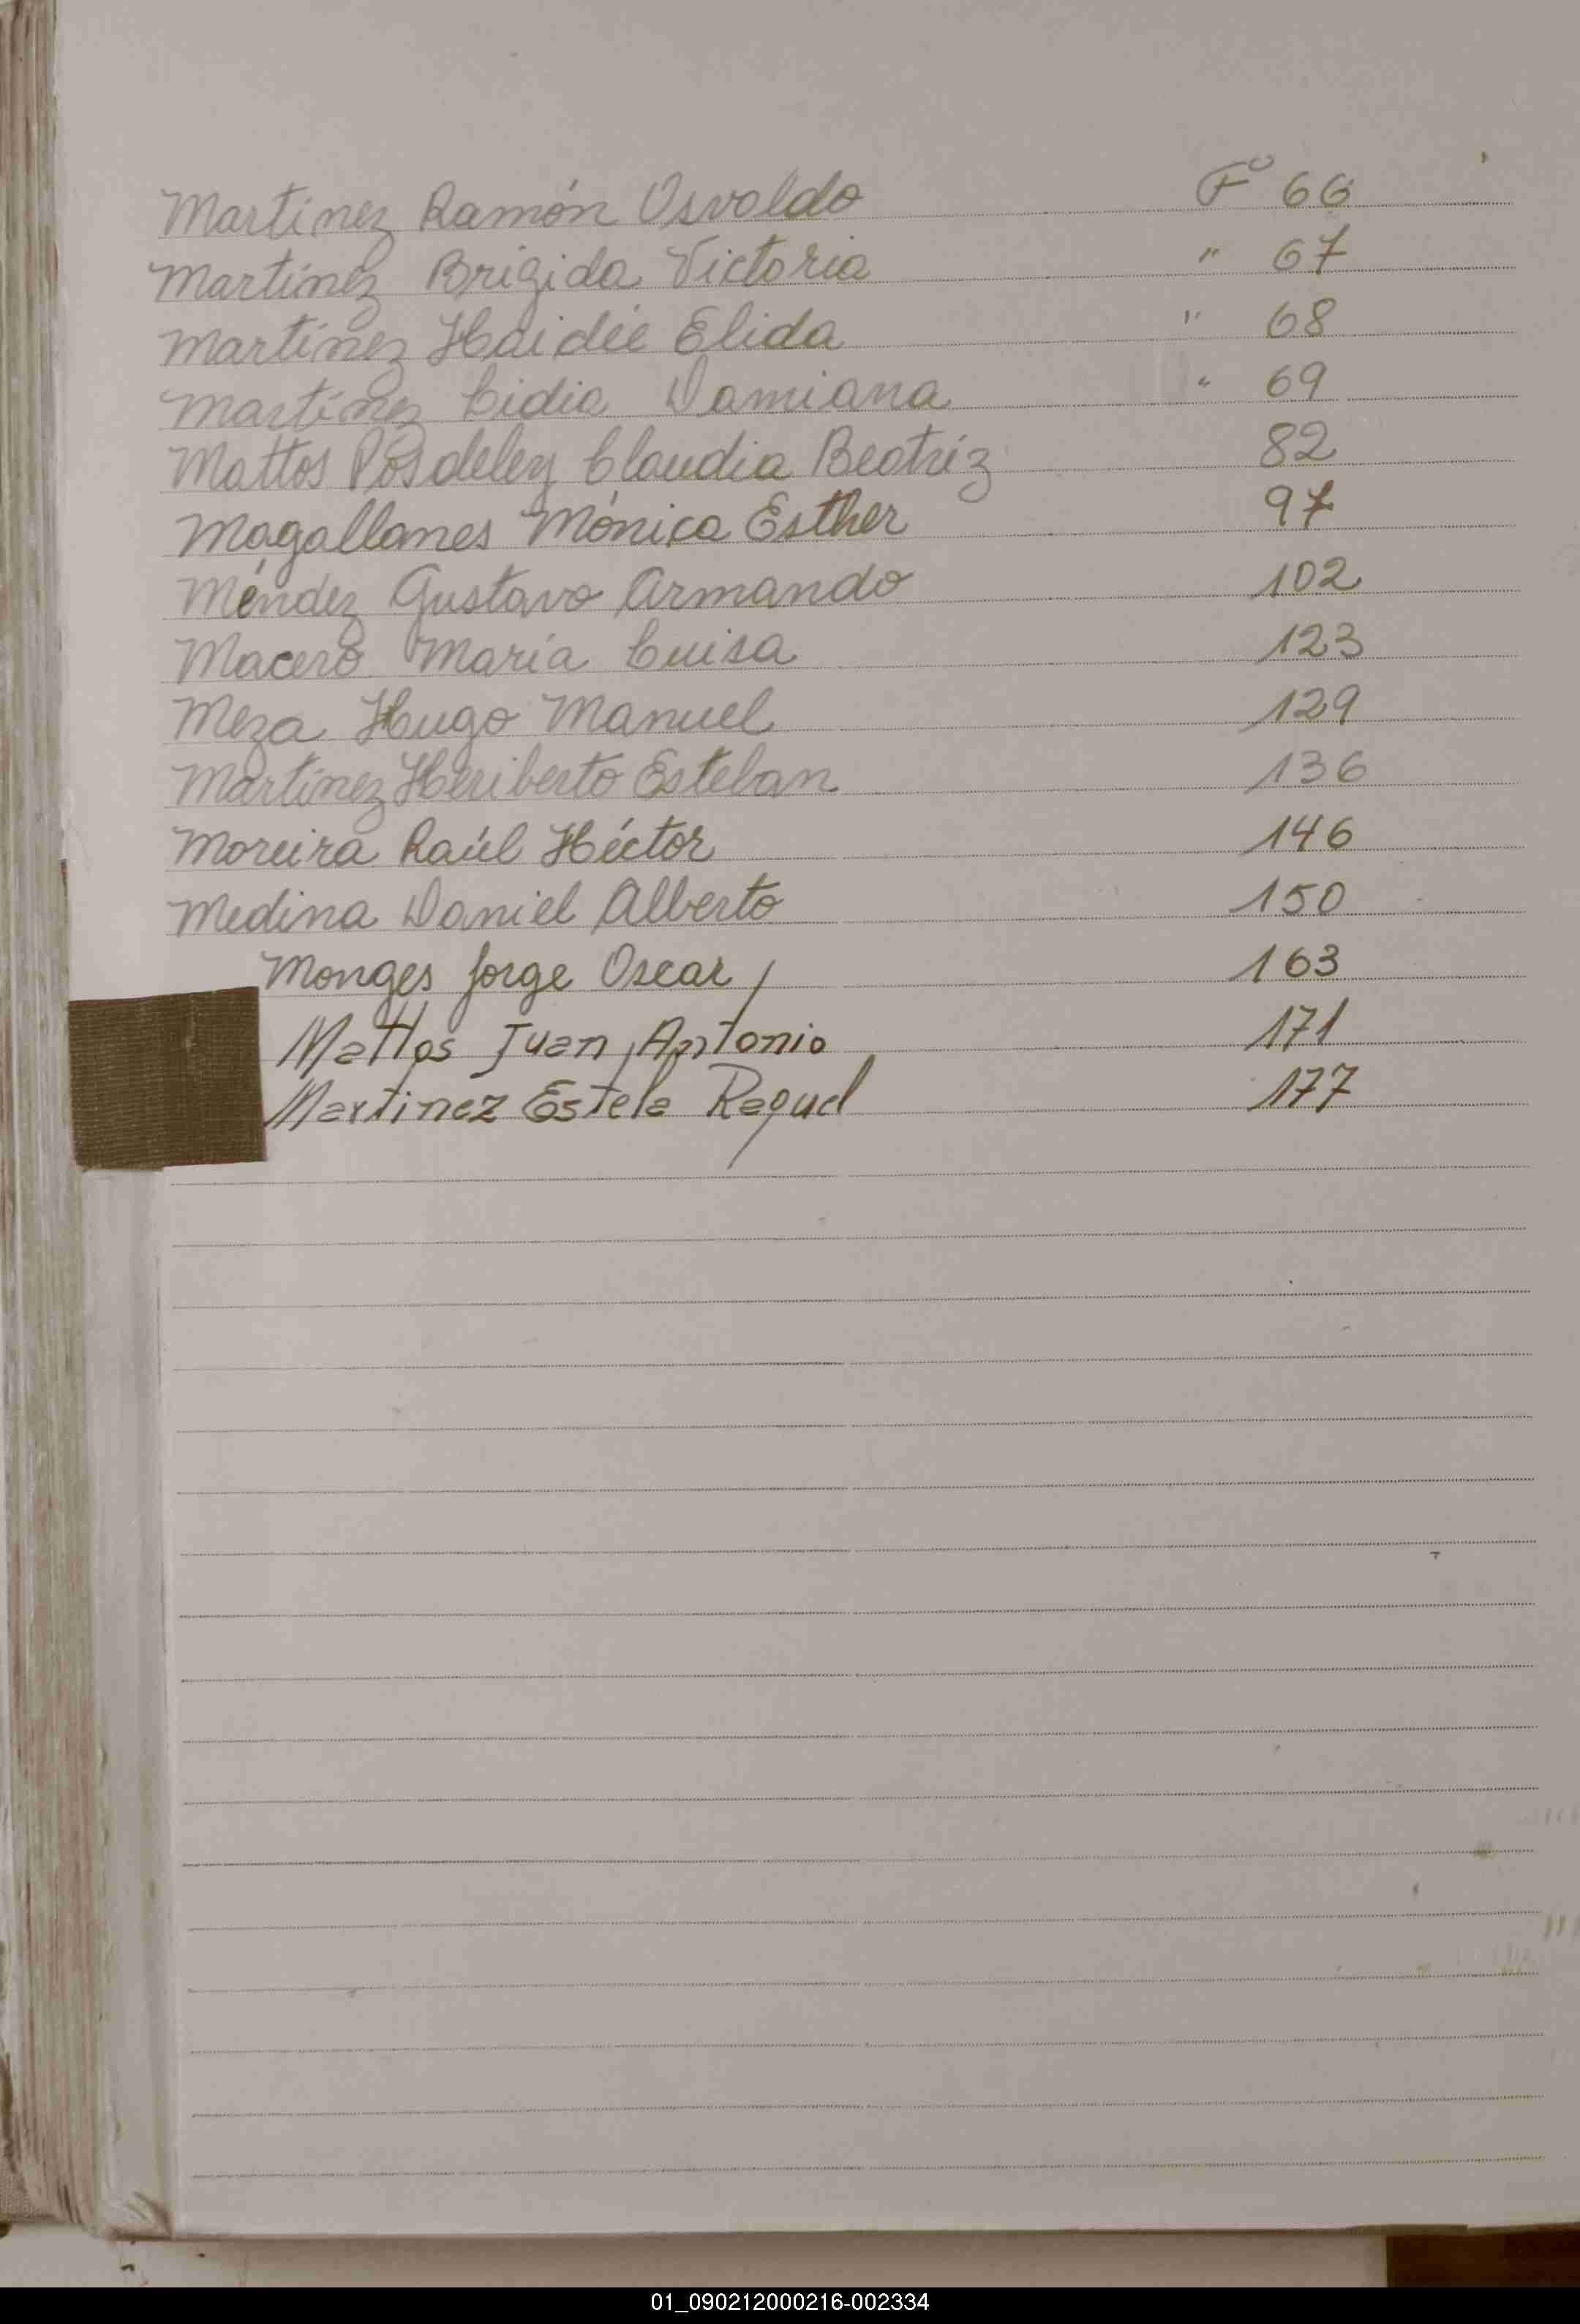 Martínez Ramón Osvaldo Fº 66
Martínez Brigida Victoria " 67
Martínez Haidée Elida " 68
Martínez Lidia Damiana " 69
Mattos Claudia Beatriz 82
Magallanes Mónica Esther 97
Méndez Gustavo Armando 102
Macero María Luisa 123
Meza Hugo Manuel 129
Martínez Heriberto Esteban 136
Moreira Raúl Héctor 146
Medina Daniel Alberto 150
Monges Jorge Oscar 163
Mattos Juan Antonio 171
Martinez Estela Raquel 177
01_090212000216-002334